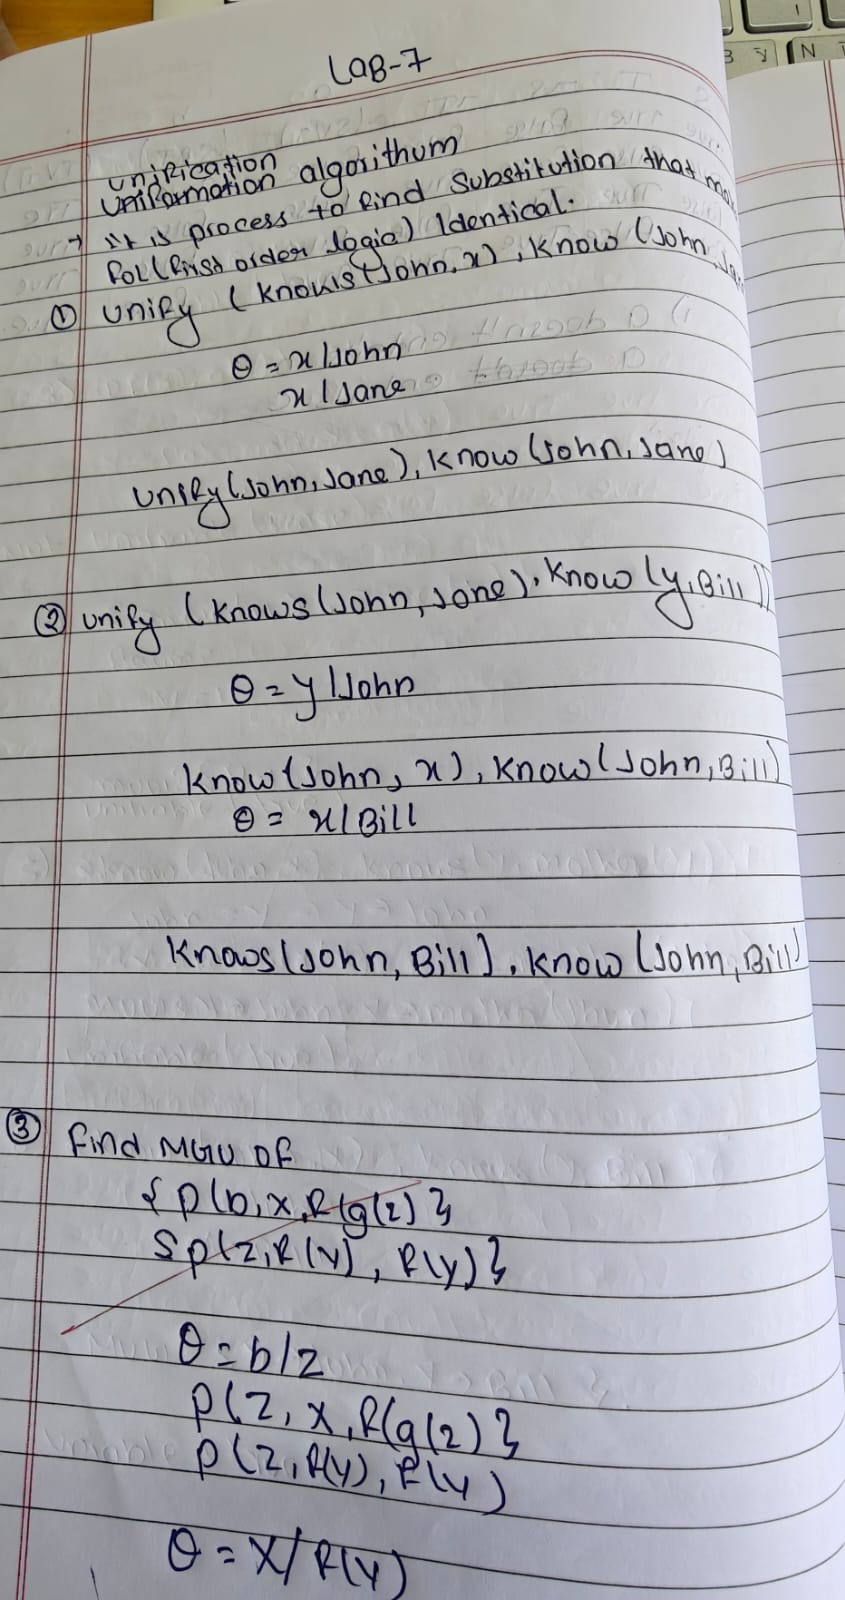 LAB-7
unification
Uniformation algorithum
→ it is process to find substitution that
FOL (first order logic) Identical.
① unify (knows(John, x), know (John,
θ = x/John
x/Jane
Unify(John, Jane), know (John, Jane)
② unify (knows (John, Jane), know (y, Bill))
θ = y/John
know (John, x), know (John, Bill)
θ = x/Bill
knows (John, Bill), know (John, Bill)
③ find MGU of
{ p(b, x, f(g(z) }
S p(z, f(y), f(y) }
θ = b/z
p(z, x, f(g(z) }
p(z, f(y), f(y)
θ = x/f(y)